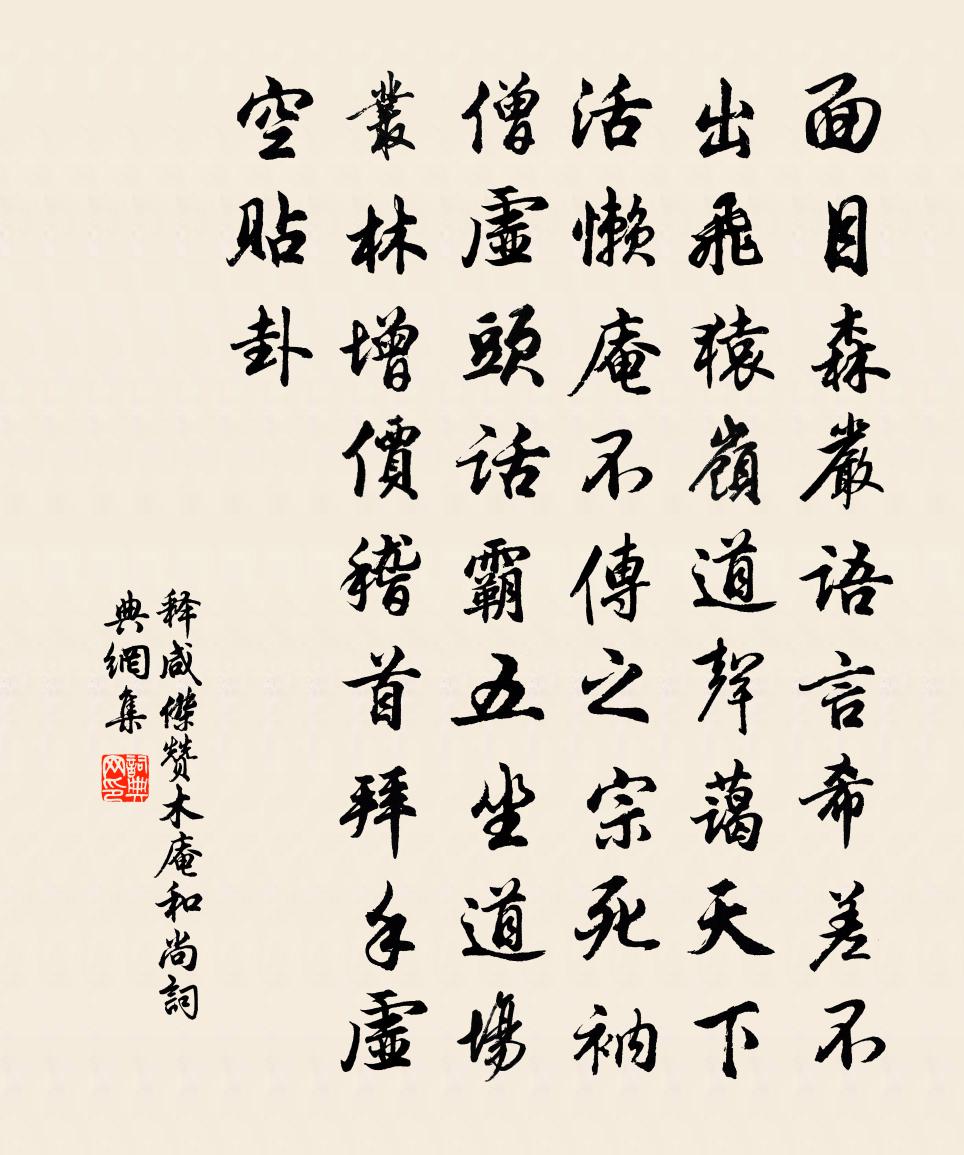 面目森嚴語言希差不
出飛猿嶺道聲藹天下
活懶庵不傳之宗死衲
僧虛頭話霸五坐道場
叢林增價稽首拜手虛
空貼卦
释咸傑赞木庵和尚詞
典網集
詞典
网印